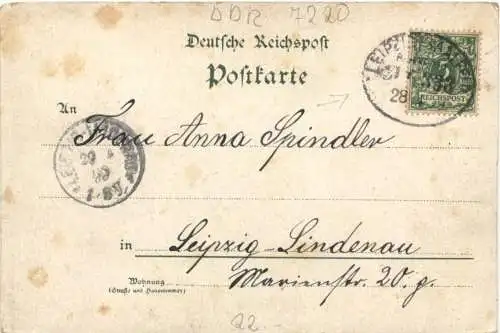 DDR 7220
Deutsche Reichspost
Postkarte
An
Frau Anna Spindler
in Leipzig-Lindenau
Marienstr. 20. g.
Wohnung
(Straße und Hausnummer)
REICHSPOST
28
29
99
22